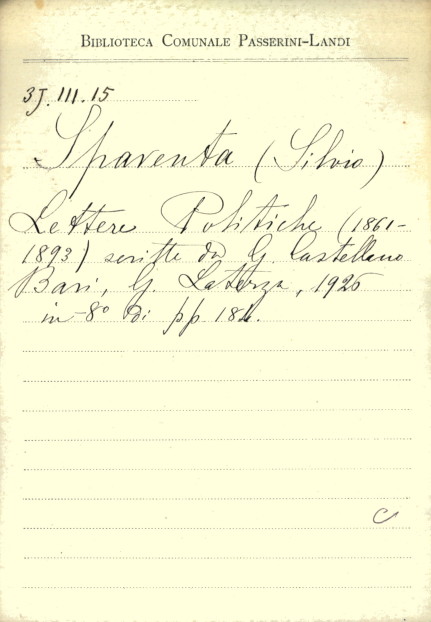 BIBLIOTECA COMUNALE PASSERINI-LANDI
3J.III.15
Spaventa (Silvio)
Lettere Politiche (1861-
1893) scritte da G. Castellano
Bari, G. Laterza, 1926
in-8° di pp 184.
C